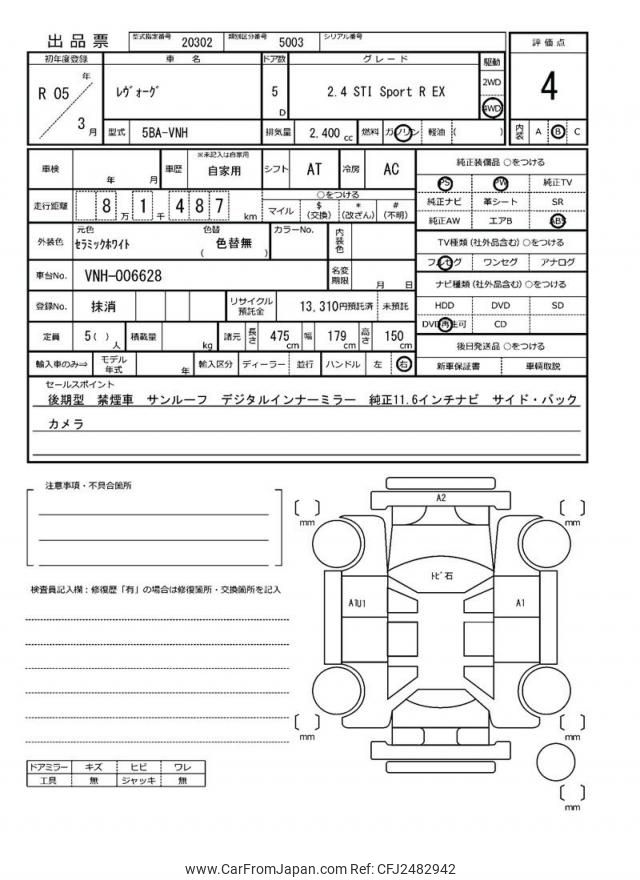 出品票 型式指定番号 20302 類別区分番号 5003 シリアル番号
初年度登録 車名 ドア数 グレード 駆動 評価点
R 05 年 3 月 ﾚｳﾞｫｰｸﾞ 5 D 2.4 STI Sport R EX 2WD 4WD 4
型式 5BA-VNH 排気量 2,400 cc 燃料 ガソリン 軽油 ( ) 内装 A B C
車検 年 月 車歴 ※未記入は自家用 自家用 シフト AT 冷房 AC 純正装備品 ○をつける
PS PW 純正TV
走行距離 8 万 1 千 4 8 7 km ○をつける
マイル $ (交換) * (改ざん) # (不明)
純正ナビ 革シート SR
純正AW エアB ABS
外装色 元色 ｾﾗﾐｯｸﾎﾜｲﾄ 色替 ( 色替無 ) カラーNo. 内装色
TV種類 (社外品含む) ○をつける
フルセグ ワンセグ アナログ
車台No. VNH-006628 名変期限 月 日
ナビ種類 (社外品含む) ○をつける
登録No. 抹消 リサイクル預託金 13,310円預託済 未預託
HDD DVD SD
DVD再生可 CD
定員 5( ) 人 積載量 kg 諸元 長さ 475 cm 幅 179 cm 高さ 150 cm
後日発送品 ○をつける
輸入車のみ⇒ モデル年式 年 輸入区分 ディーラー 並行 ハンドル 左 右
新車保証書 車輌取説
セールスポイント
後期型 禁煙車 サンルーフ デジタルインナーミラー 純正11.6インチナビ サイド・バック
カメラ
注意事項・不具合箇所
A2
mm
mm
ﾄﾋﾞ石
検査員記入欄:修復歴「有」の場合は修復箇所・交換箇所を記入
A1U1
A1
mm
mm
ドアミラー キズ ヒビ ワレ
工具 無 ジャッキ 無
mm
www.CarFromJapan.com Ref: CFJ2482942